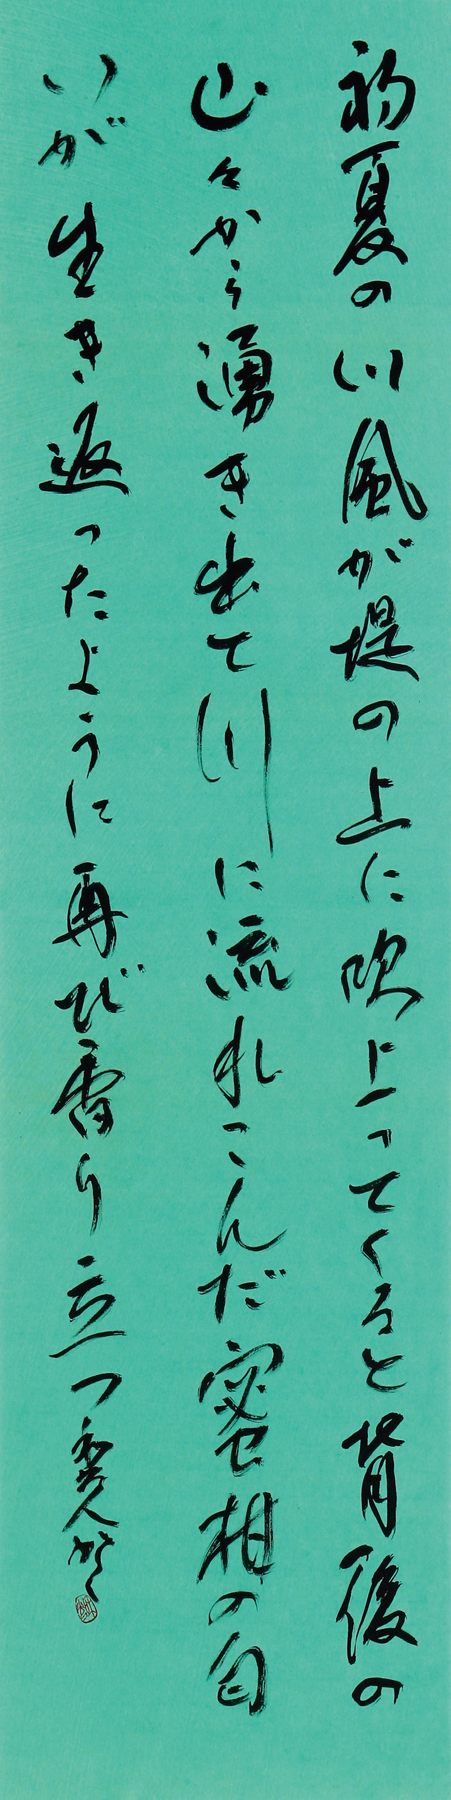 初夏の川風が堤の上に吹上ってくると背後の
山々から湧き出て川に流れこんだ蜜柑の匂
いが生き返ったように再び香り立つ